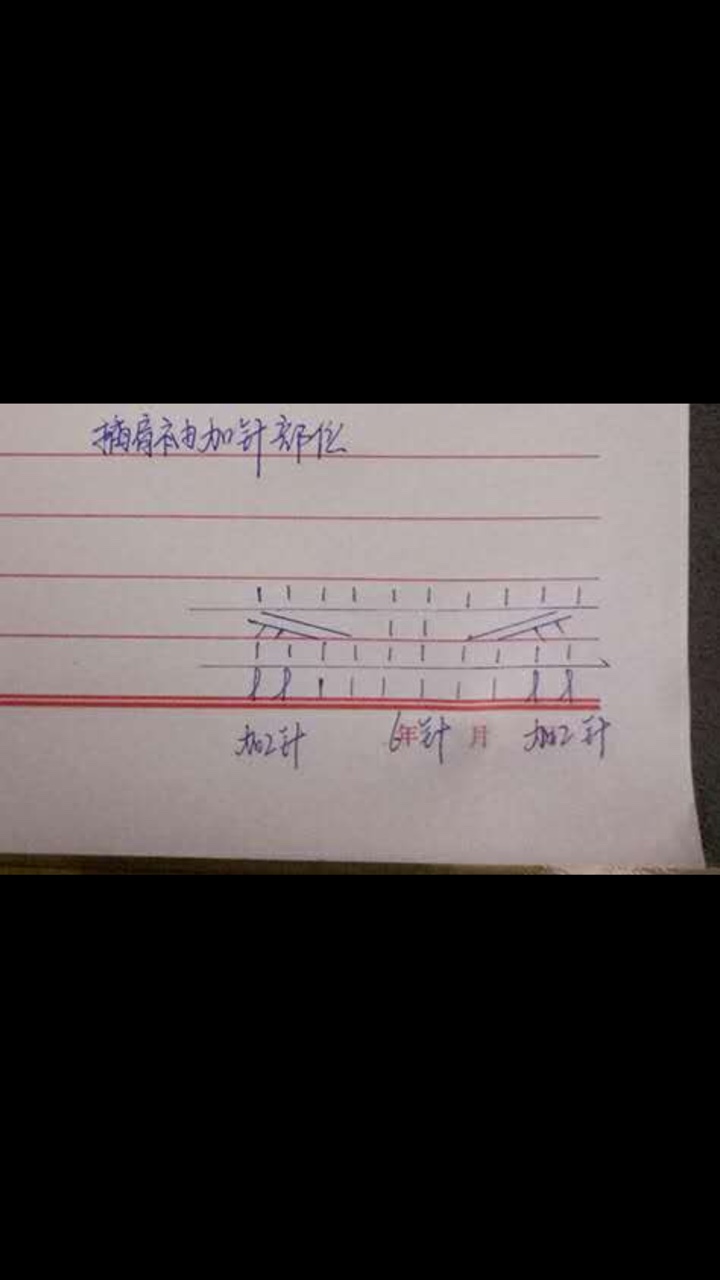 插肩袖加针部位
加2针 6针 年 月 加2针